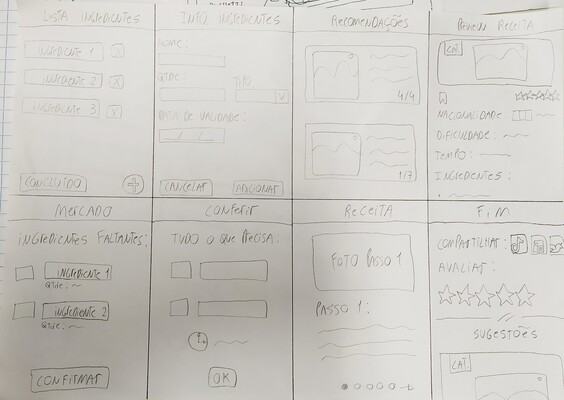 LISTA INGREDIENTES
INGREDIENTE 1 X
INGREDIENTE 2 X
INGREDIENTE 3 X
CONCLUÍDO +
INFO INGREDIENTES
NOME:
QTDE: TIPO:
DATA DE VALIDADE:
CANCELAR ADICIONAR
RECOMENDAÇÕES
4/4
1/7
REVIEW RECEITA
CAT.
NACIONALIDADE:
DIFICULDADE:
TEMPO:
INGREDIENTES:
MERCADO
INGREDIENTES FALTANTES:
INGREDIENTE 1
QTDE:
INGREDIENTE 2
QTDE:
CONFIRMAR
CONFERIR
TUDO O QUE PRECISA:
OK
RECEITA
FOTO PASSO 1
PASSO 1:
FIM
COMPARTILHAR:
AVALIAR:
SUGESTÕES
CAT.